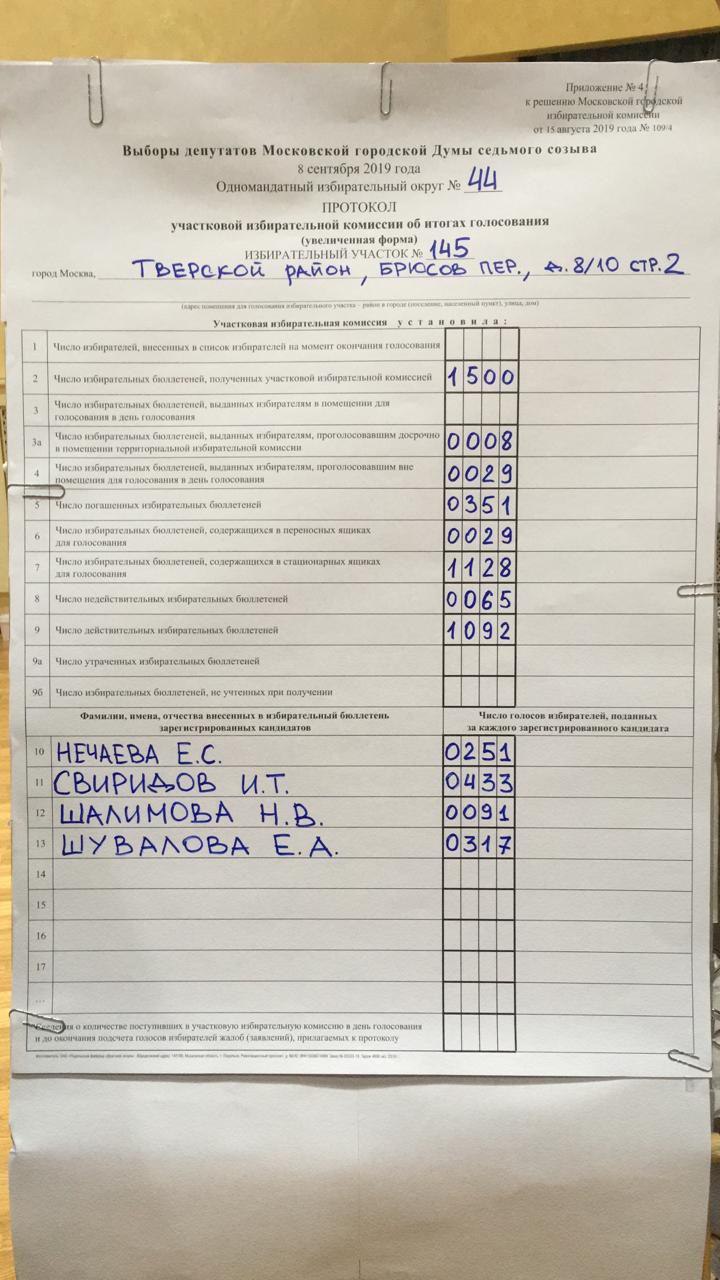 Приложение № 4
к решению Московской городской
избирательной комиссии
от 15 августа 2019 года № 109/4
Выборы депутатов Московской городской Думы седьмого созыва
8 сентября 2019 года
Одномандатный избирательный округ № 44
ПРОТОКОЛ
участковой избирательной комиссии об итогах голосования
(увеличенная форма)
ИЗБИРАТЕЛЬНЫЙ УЧАСТОК № 145
город Москва, ТВЕРСКОЙ РАЙОН, БРЮСОВ ПЕР., д. 8/10 СТР. 2
(адрес помещения для голосования избирательного участка – район в городе (поселение, населенный пункт), улица, дом)
Участковая избирательная комиссия установила:
1 Число избирателей, внесенных в список избирателей на момент окончания голосования
2 Число избирательных бюллетеней, полученных участковой избирательной комиссией 1500
3 Число избирательных бюллетеней, выданных избирателям в помещении для
голосования в день голосования
3а Число избирательных бюллетеней, выданных избирателям, проголосовавшим досрочно
в помещении территориальной избирательной комиссии 0008
4 Число избирательных бюллетеней, выданных избирателям, проголосовавшим вне
помещения для голосования в день голосования 0029
5 Число погашенных избирательных бюллетеней 0351
6 Число избирательных бюллетеней, содержащихся в переносных ящиках
для голосования 0029
7 Число избирательных бюллетеней, содержащихся в стационарных ящиках
для голосования 1128
8 Число недействительных избирательных бюллетеней 0065
9 Число действительных избирательных бюллетеней 1092
9а Число утраченных избирательных бюллетеней
9б Число избирательных бюллетеней, не учтенных при получении
Фамилии, имена, отчества внесенных в избирательный бюллетень
зарегистрированных кандидатов
Число голосов избирателей, поданных
за каждого зарегистрированного кандидата
10 НЕЧАЕВА Е.С. 0251
11 СВИРИДОВ И.Т. 0433
12 ШАЛИМОВА Н.В. 0091
13 ШУВАЛОВА Е.А. 0317
14
15
16
17
...
Сведения о количестве поступивших в участковую избирательную комиссию в день голосования
и до окончания подсчета голосов избирателей жалоб (заявлений), прилагаемых к протоколу